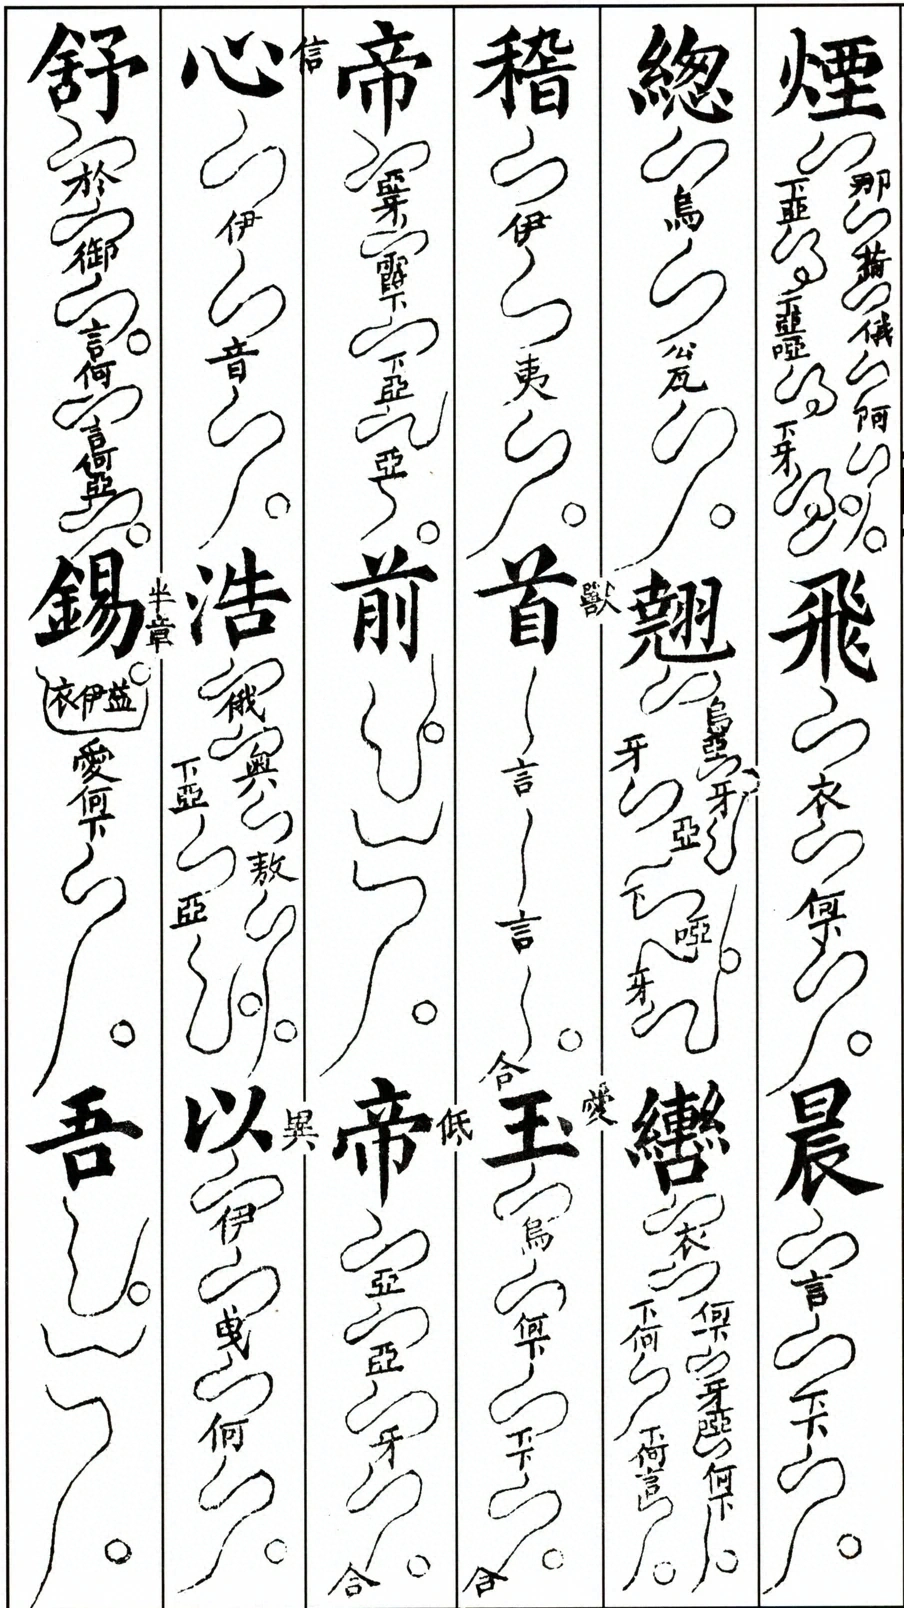 煙 那 荷 俄 阿 下亞 下亞啞 下牙 飛 衣 何下 晨 言 下下
緫 烏 翹 烏亞 牙 牙 亞 下 啞 牙 轡 衣 何下 牙啞 何下 下何 下何言
稽 伊 夷 首 獸 言 言 合 玉 愛 烏 何下 下下 合
帝 亞牙 霞下 下亞 亞 前 帝 低 亞 亞 牙 合
心 信 伊 音 浩 俄 奧 敖 下亞 亞 以 異 伊 曳 何
舒 於 御 言何 言何亞 錫 半章 益伊衣 愛何下 吾